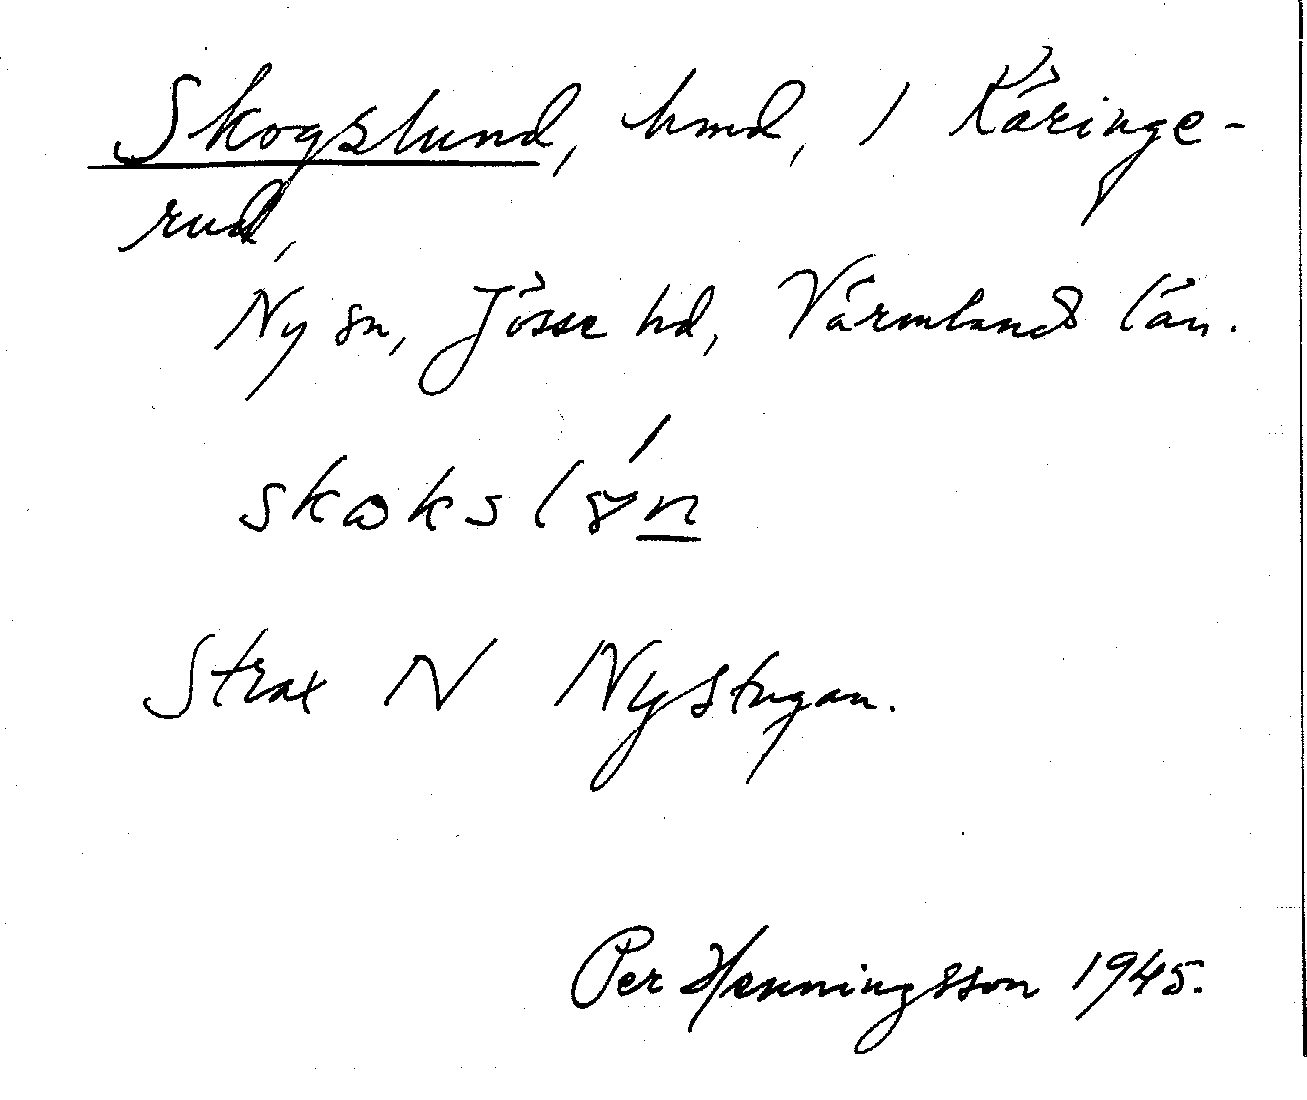 Skogslund, hmd, 1 Käringe-
rud,
Ny sn, Jösse hd, Värmlands län.
skɷkslɤ́n
Strax N Nystugan.
Per Henningsson 1945.